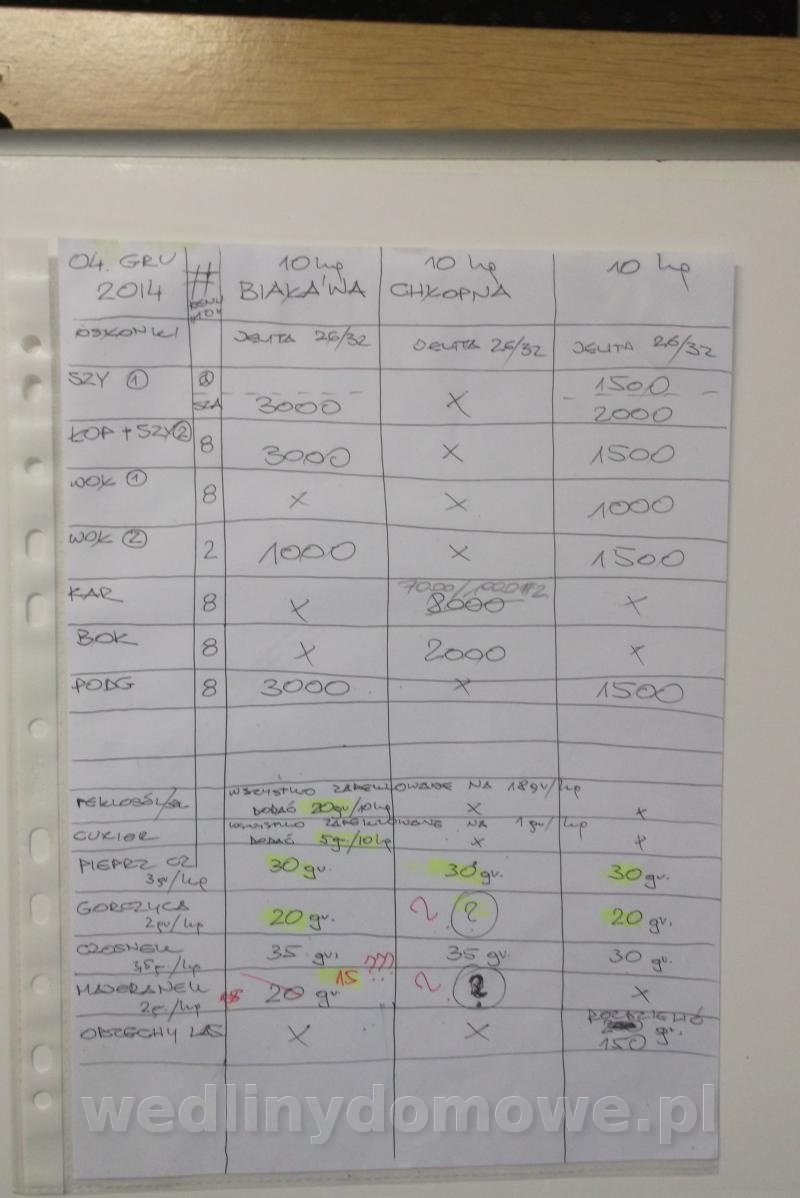 04. GRU # 10 kg 10 kg 10 kg
2014 BIAŁA'WA CHŁOPNA
OSŁONKI JELITA 26/32 JELITA 26/32 JELITA 26/32
SZY ① 1500
SZA 3000 X 2000
ŁOP + SZY② 8 3000 X 1500
WOŁ ① 8 X X 1000
WOŁ ② 2 1000 X 1500
7000/1000#2
KAR 8 X 8000 X
BOK 8 X 2000 X
PODG 8 3000 X 1500
WSZYSTKO ZAPEKLOWANE NA 18gr/kg
DODAĆ 20gr/10kg X X
WSZYSTKO ZAPEKLOWANE NA 1gr/kg
CUKIER DODAĆ 5gr/10kg X X
PIEPRZ CZ 30 gr. 30 gr. 30 gr.
3gr/kg
GORCZYCA 20 gr. ? ? 20 gr.
2gr/kg
CZOSNEK 35 gr. 35 gr. 30 gr.
3,5gr./kg
MAJERANEK 20 gr. 15 ??? ? ? X
2gr./kg
ORZECHY LAS X X gr.
150
wedlinydomowe.pl